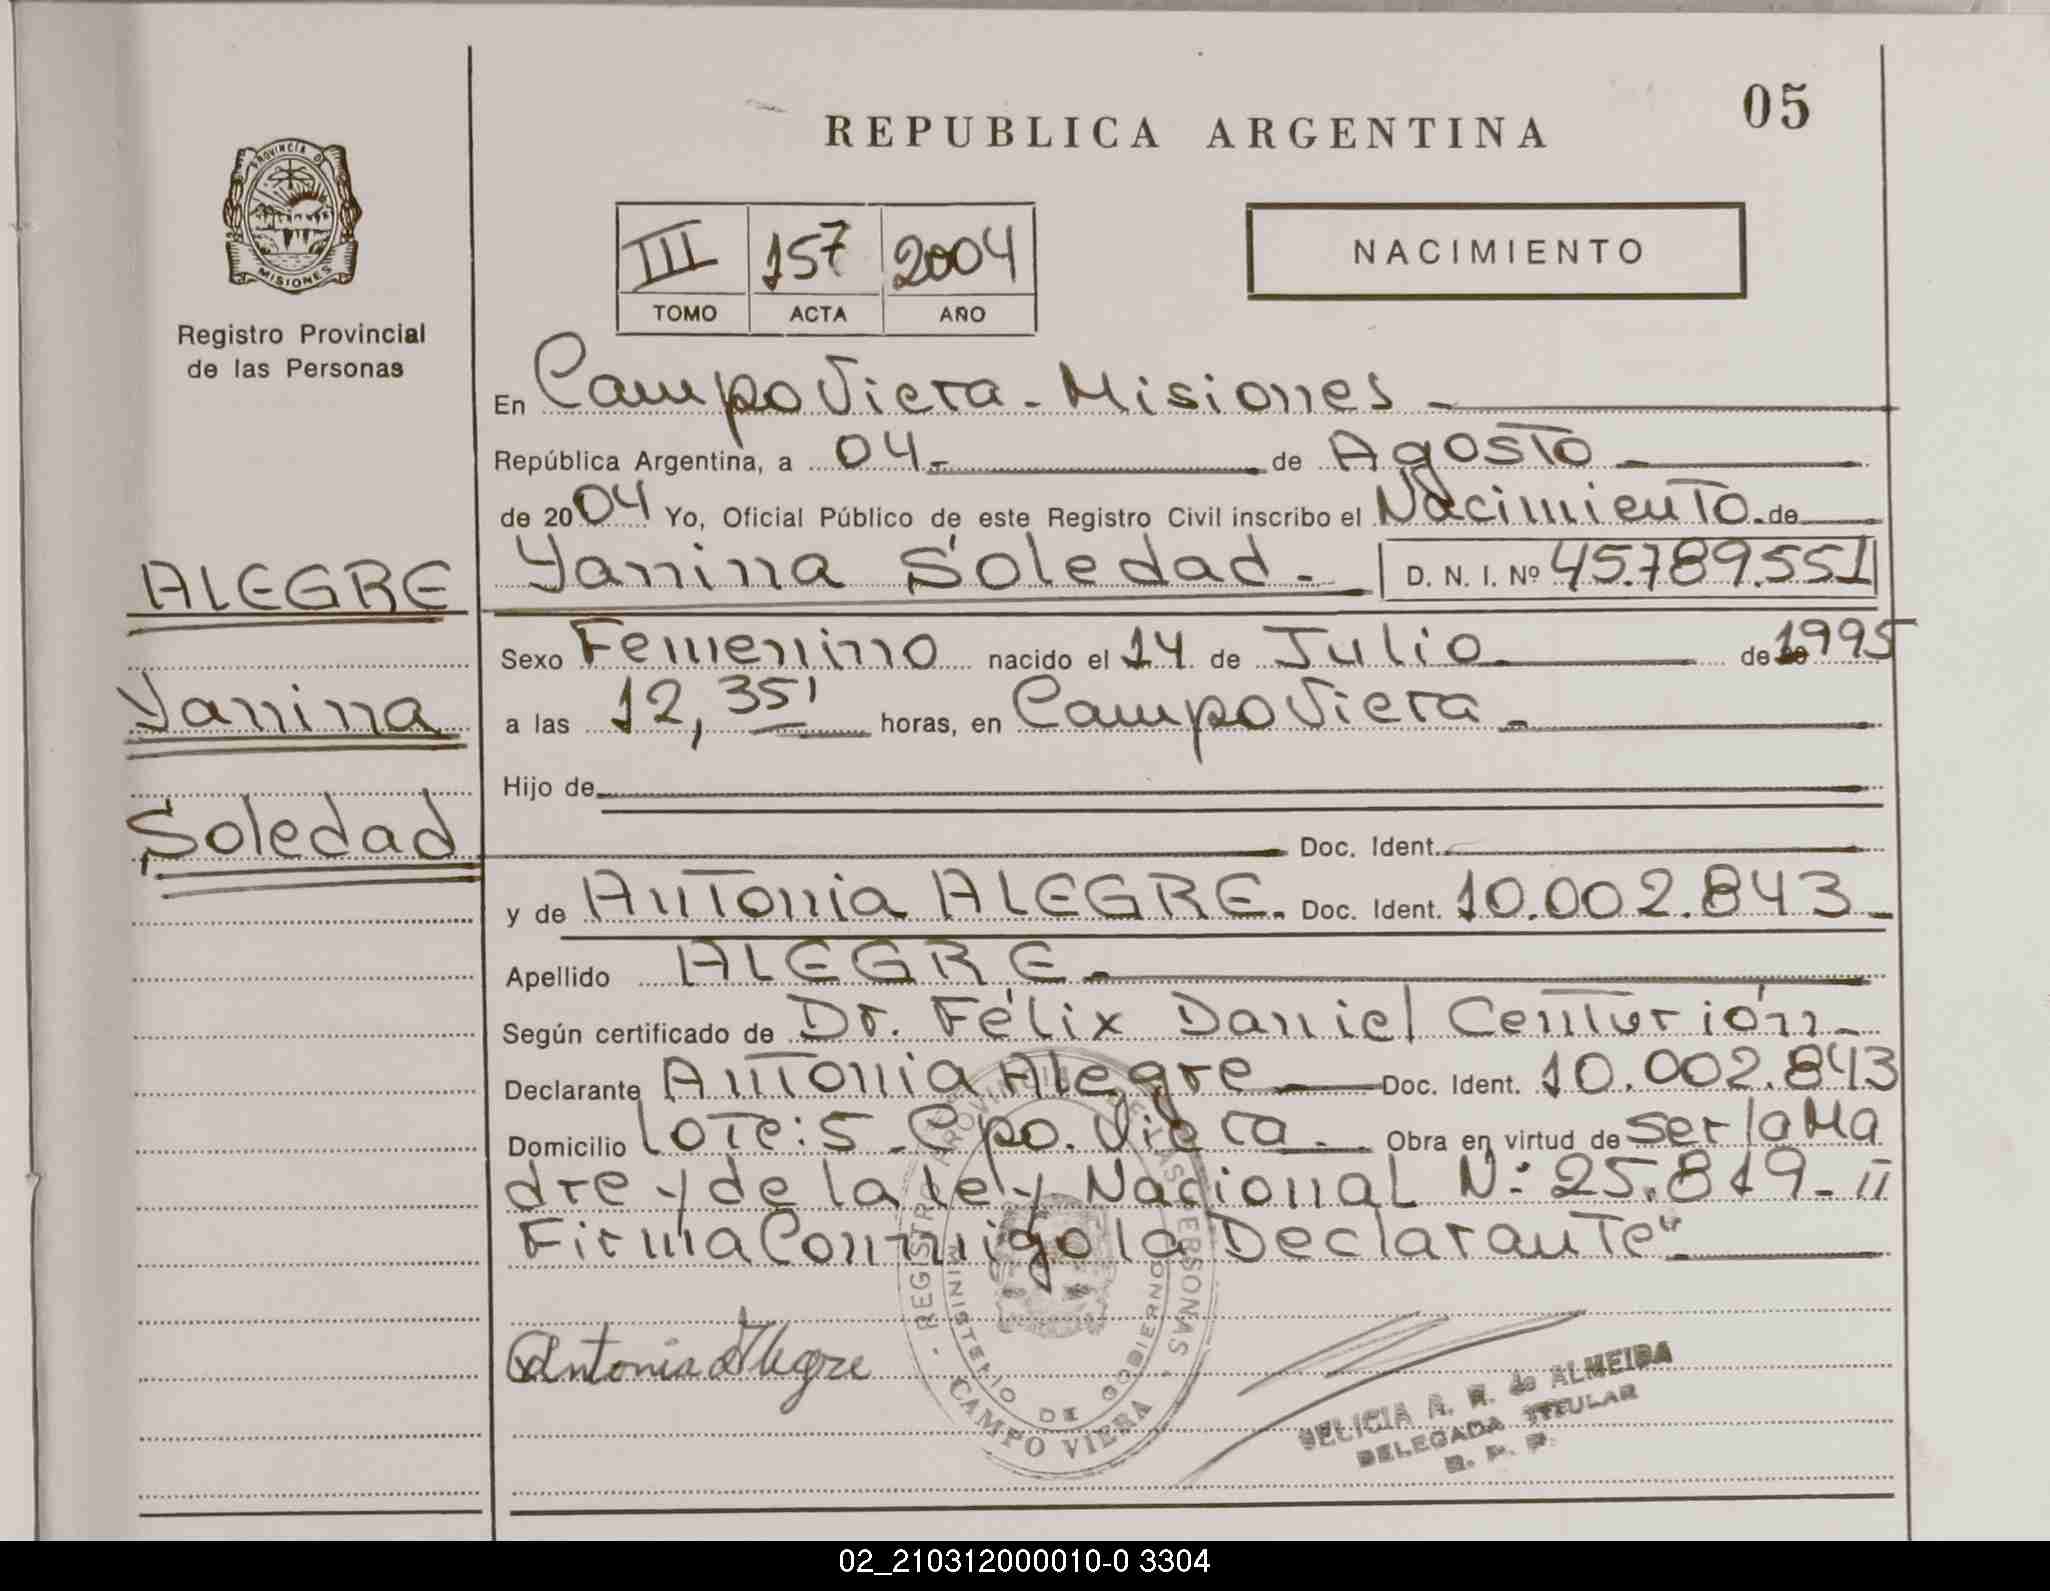 05
REPUBLICA ARGENTINA
PROVINCIA D
MISIONES
Registro Provincial
de las Personas
III 157 2004
TOMO ACTA AÑO
NACIMIENTO
En Campo Viera - Misiones -
República Argentina, a 04 - de Agosto -
de 2004 Yo, Oficial Público de este Registro Civil inscribo el Nacimiento. de
Yanina Soledad. - D. N. I. Nº 45.789.551
ALEGRE
Yanina
Soledad
Sexo Femenino nacido el 14 de Julio de 1995
a las 12,35' horas, en Campo Viera -
Hijo de
Doc. Ident.
y de Antonia ALEGRE. Doc. Ident. 10.002.843 -
Apellido ALEGRE -
Según certificado de Dr. Félix Daniel Centurión -
Declarante Antonia Alegre - Doc. Ident. 10.002.843
Domicilio Lote: 5 - Cpo. Viera. - Obra en virtud de ser la Ma
dre y de la ley Nacional N: 25.819 - "
Firma Conmigo la Declarante" -
Antonia Alegre
REGISTRO PROVINCIAL DE LAS PERSONAS
MINISTERIO DE GOBIERNO
CAMPO VIERA
FELICIA A. R. de ALMEIDA
DELEGADA TITULAR
R. P. P.
02_210312000010-0 3304